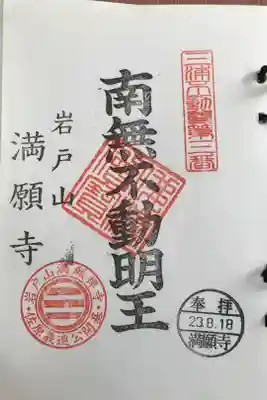 三浦不動尊第三番
南無不動明王
岩戸山
満願寺
奉拝
23.8.18
満願寺
岩戸山満願禅寺
佐原義連公開基